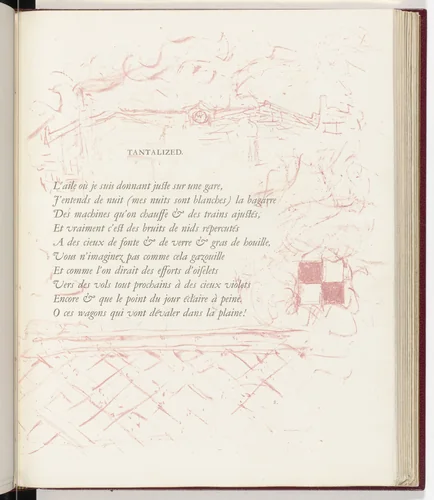 TANTALIZED.
L'aile où je suis donnant juste sur une gare,
J'entends de nuit (mes nuits sont blanches) la bagarre
Des machines qu'on chauffe & des trains ajustés,
Et vraiment c'est des bruits de nids répercutés
A des cieux de fonte & de verre & gras de houille.
Vous n'imaginez pas comme cela gazouille
Et comme l'on dirait des efforts d'oiselets
Vers des vols tout prochains à des cieux violets
Encore & que le point du jour éclaire à peine.
O ces wagons qui vont dévaler dans la plaine!